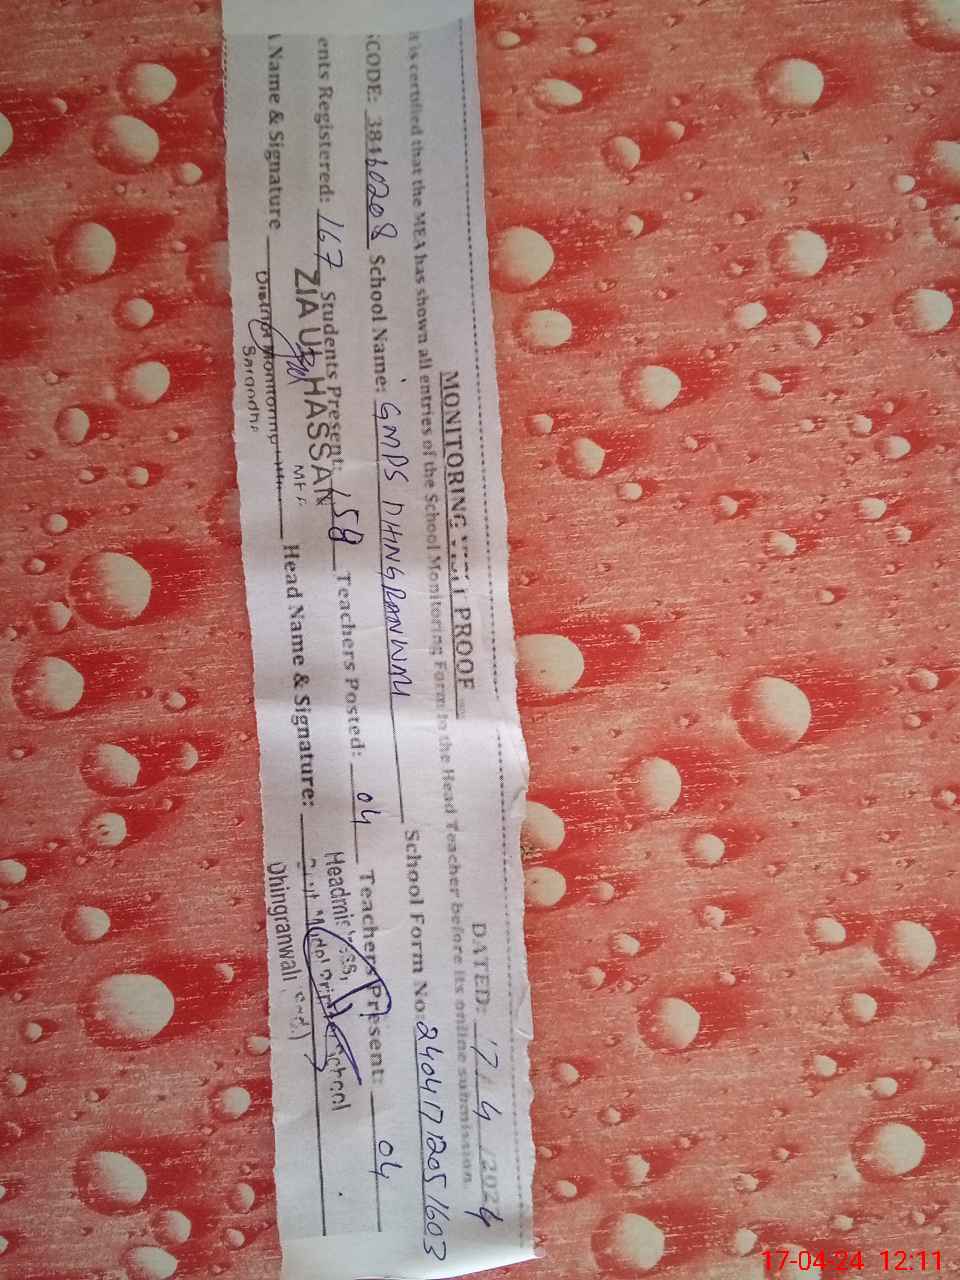 MONITORING VISIT PROOF
DATED: 17/4/2024
It is certified that the MEA has shown all entries of the School Monitoring Form to the Head Teacher before its online submission.
CODE: 38460208 School Name: GMPS DHINGRANWALI School Form No: 24041712051603
ents Registered: 167 Students Present: 158 Teachers Posted: 04 Teachers Present: 04
Name & Signature Head Name & Signature:
ZIA UL HASSAN
MEA
District Monitoring
Sargodha
Headmistress,
Govt Model Primary School
Dhingranwali
17-04-24 12:11